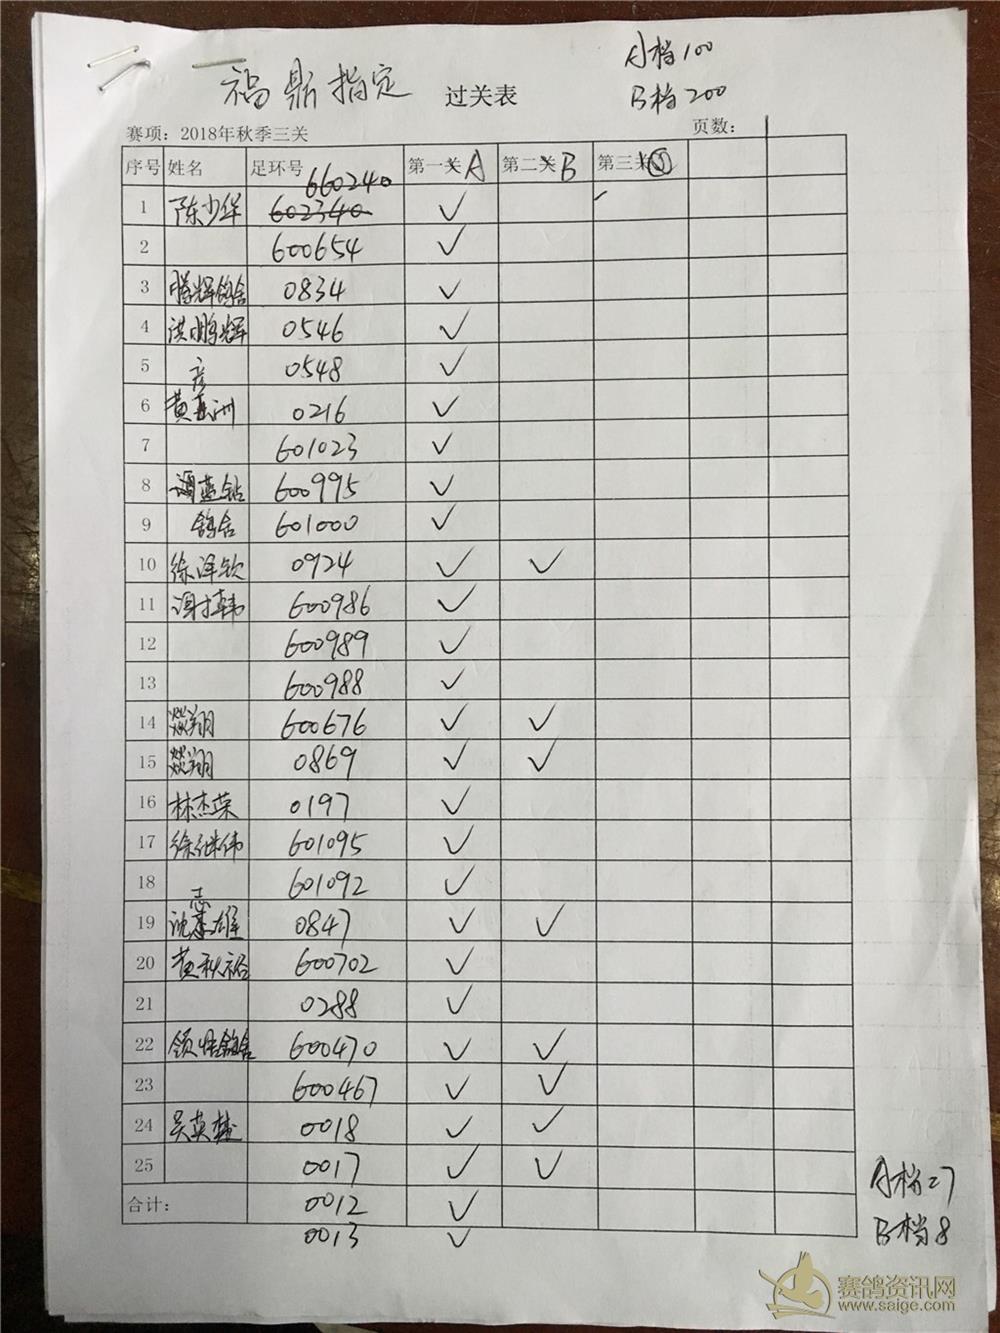 A档100
福鼎指定 过关表
B档200
赛项：2018年秋季三关 页数： 1
序号 姓名 足环号 第一关A 第二关B 第三关
660240
1 陈少华 602340 ✓
2 600654 ✓
3 腾辉鸽舍 0834 ✓
4 洪鹏辉 0546 ✓
5 0548 ✓
彦
6 黄洲 0216 ✓
7 601023 ✓
8 蓝钻 600995 ✓
9 鸽舍 601000 ✓
10 徐泽钦 0924 ✓ ✓
11 600986 ✓
12 600989 ✓
13 600988 ✓
14 燚翔 600676 ✓ ✓
15 燚翔 0869 ✓ ✓
16 林杰荣 0197 ✓
17 徐继伟 601095 ✓
18 601092 ✓
志
19 沈雄 0847 ✓ ✓
20 黄秋裕 600702 ✓
21 0288 ✓
22 鸽舍 600470 ✓ ✓
23 600467 ✓ ✓
24 吴英 0018 ✓ ✓
25 0017 ✓ ✓
合计： 0012 ✓
0013 ✓
A档27
B档8
赛鸽资讯网
www.saige.com